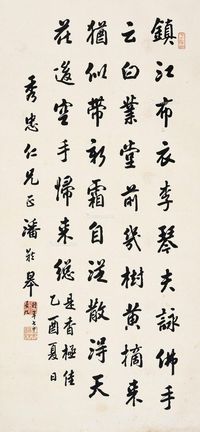 鎮江布衣李琴夫詠佛手
云白業堂前幾樹黃摘來
猶似帶新霜自從散得天
花後空手歸來總是香極佳
乙酉夏日
秀忠仁兄正潘齡皋